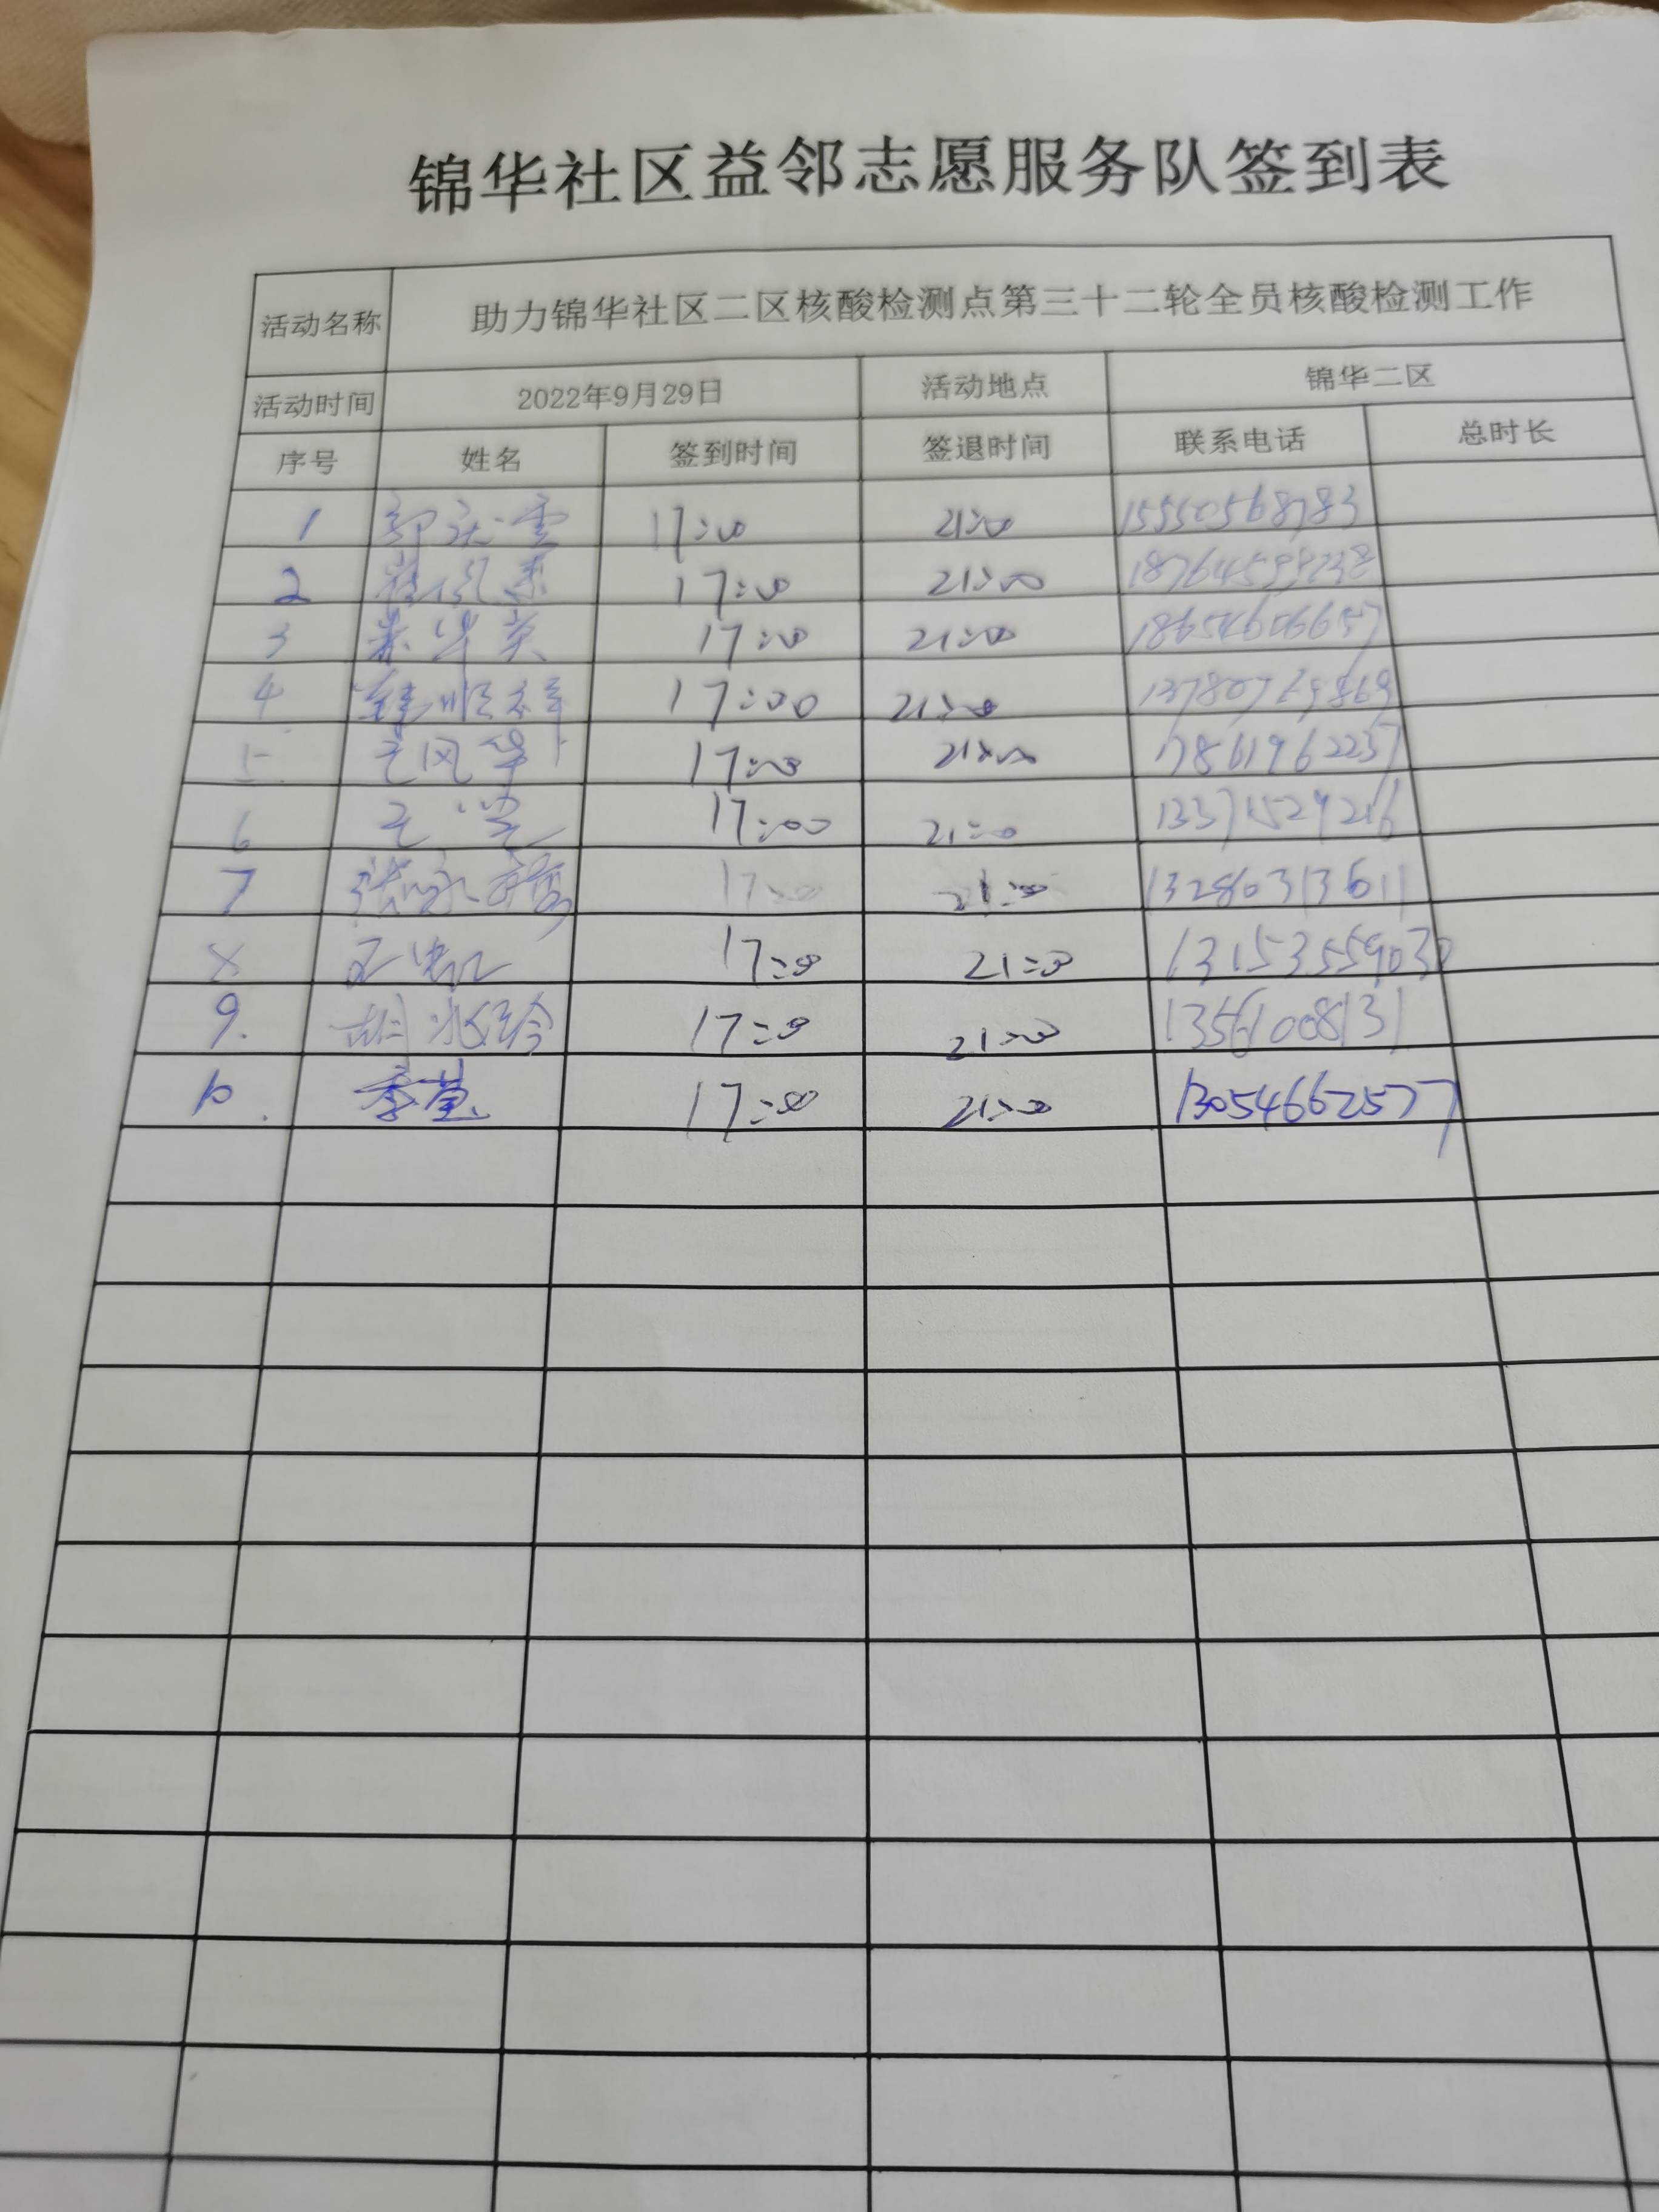 锦华社区益邻志愿服务队签到表
活动名称 助力锦华社区二区核酸检测点第三十二轮全员核酸检测工作
活动时间 2022年9月29日 活动地点 锦华二区
序号 姓名 签到时间 签退时间 联系电话 总时长
1 17:00 21:00 15550568783
2 17:00 21:00
3 17:00 21:00 18654606657
4 17:00 21:00 13780769869
5 王风华 17:00 21:00 17861962257
6 17:00 21:00 13371529216
7 17:00 21:00 13280313611
8 17:00 21:00
9. 17:00 21:00 13561008131
10. 李莹 17:00 21:00 13054662577